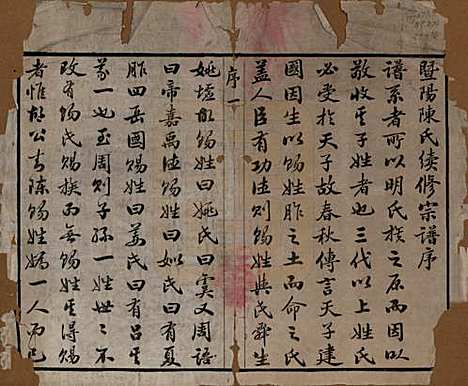 暨陽陳氏續修宗譜序
譜系者所以明氏族之原而因以
敬收其子姓者也三代以上姓氏
必受於天子故春秋傳言天子建
國因生以賜姓胙之土而命之氏
蓋人臣有功德則賜姓與氏舜生
序一
姚墟故賜姓曰姚氏曰虞又周語
曰帝嘉禹德賜姓曰姒氏曰有夏
胙四岳國賜姓曰姜氏曰有呂其
義一也至周則子孫一姓世世不
改有賜氏賜族而無賜姓其得賜
者惟胡公封陳賜姓媯一人而已